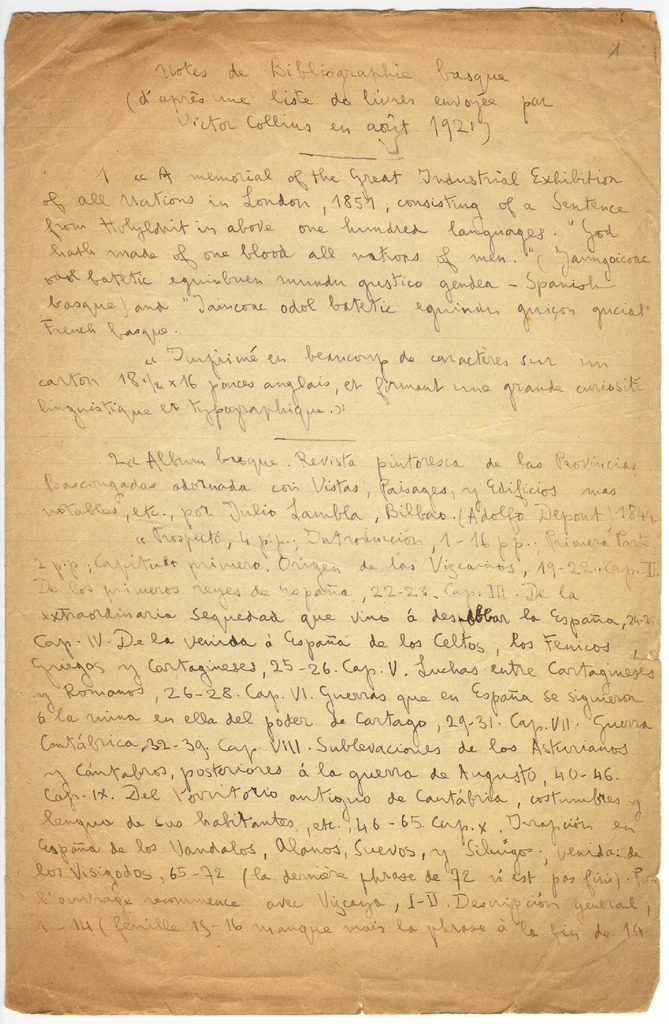 1
Notes de Bibliographie basque
(d'après une liste de livres envoyée par
Victor Collins en août 1921)
1 « A memorial of the Great Industrial Exhibition
of all Nations in London, 1851, consisting of a Sentence
from Holy in above one hundred languages. "God
hath made of one blood all nations of men." (Jaungoicoac
odol batetic eguinbuen mundu gustico gendea - Spanish
basque) and "Jaincoac odol batetic eguindu guiçon gucial"
French basque.
« Imprimé en beaucoup de caractères sur un
carton 18 1/2 x 16 pouces anglais, et formant une grande curiosité
linguistique et typographique. »
2 « Album basque. Revista pintoresca de las Provincias
Bascongadas adornada con Vistas, Paisages, y Edificios mas
notables, etc., por Julio Lambla, Bilbao. (Adolfo Depont)
« Prospecto, 4 p.p.; Introduccion, 1-16 pp. Primera Parte,
2 p.p.; Capitulo primero. Origen de los Vizcainos, 19-22. Cap. II.
De los primeros reyes de España, 22-23. Cap. III. De la
extraordinaria sequedad que vino á la España,
Cap. IV. De la venida á España de los Celtos, los Fenicos,
Griegos y Cartagineses, 25-26. Cap. V. Luchas entre Cartagineses
y Romanos, 26-28. Cap. VI. Guerras que en España se siguieron
á la ruina en ella del poder de Cartago, 29-31. Cap. VII. Guerra
Cantábrica, 32-39. Cap. VIII. Sublevaciones de los Asturianos
y Cántabros, posteriores á la guerra de Augusto, 40-46.
Cap. IX. Del Territorio antiguo de Cantábria, costumbres y
lengua de sus habitantes, etc., 46-65. Cap. X. Irrupción en
España de los Vandalos, Alanos, Suevos, y Silingos; venida de
los Visigodos, 65-72 (la dernière phrase de 72 n'est pas fini).
l'ouvrage recommence avec Vizcaya, I-II. Descripción general,
1-14 (feuille 15-16 manque mais la phrase à la fin de 14